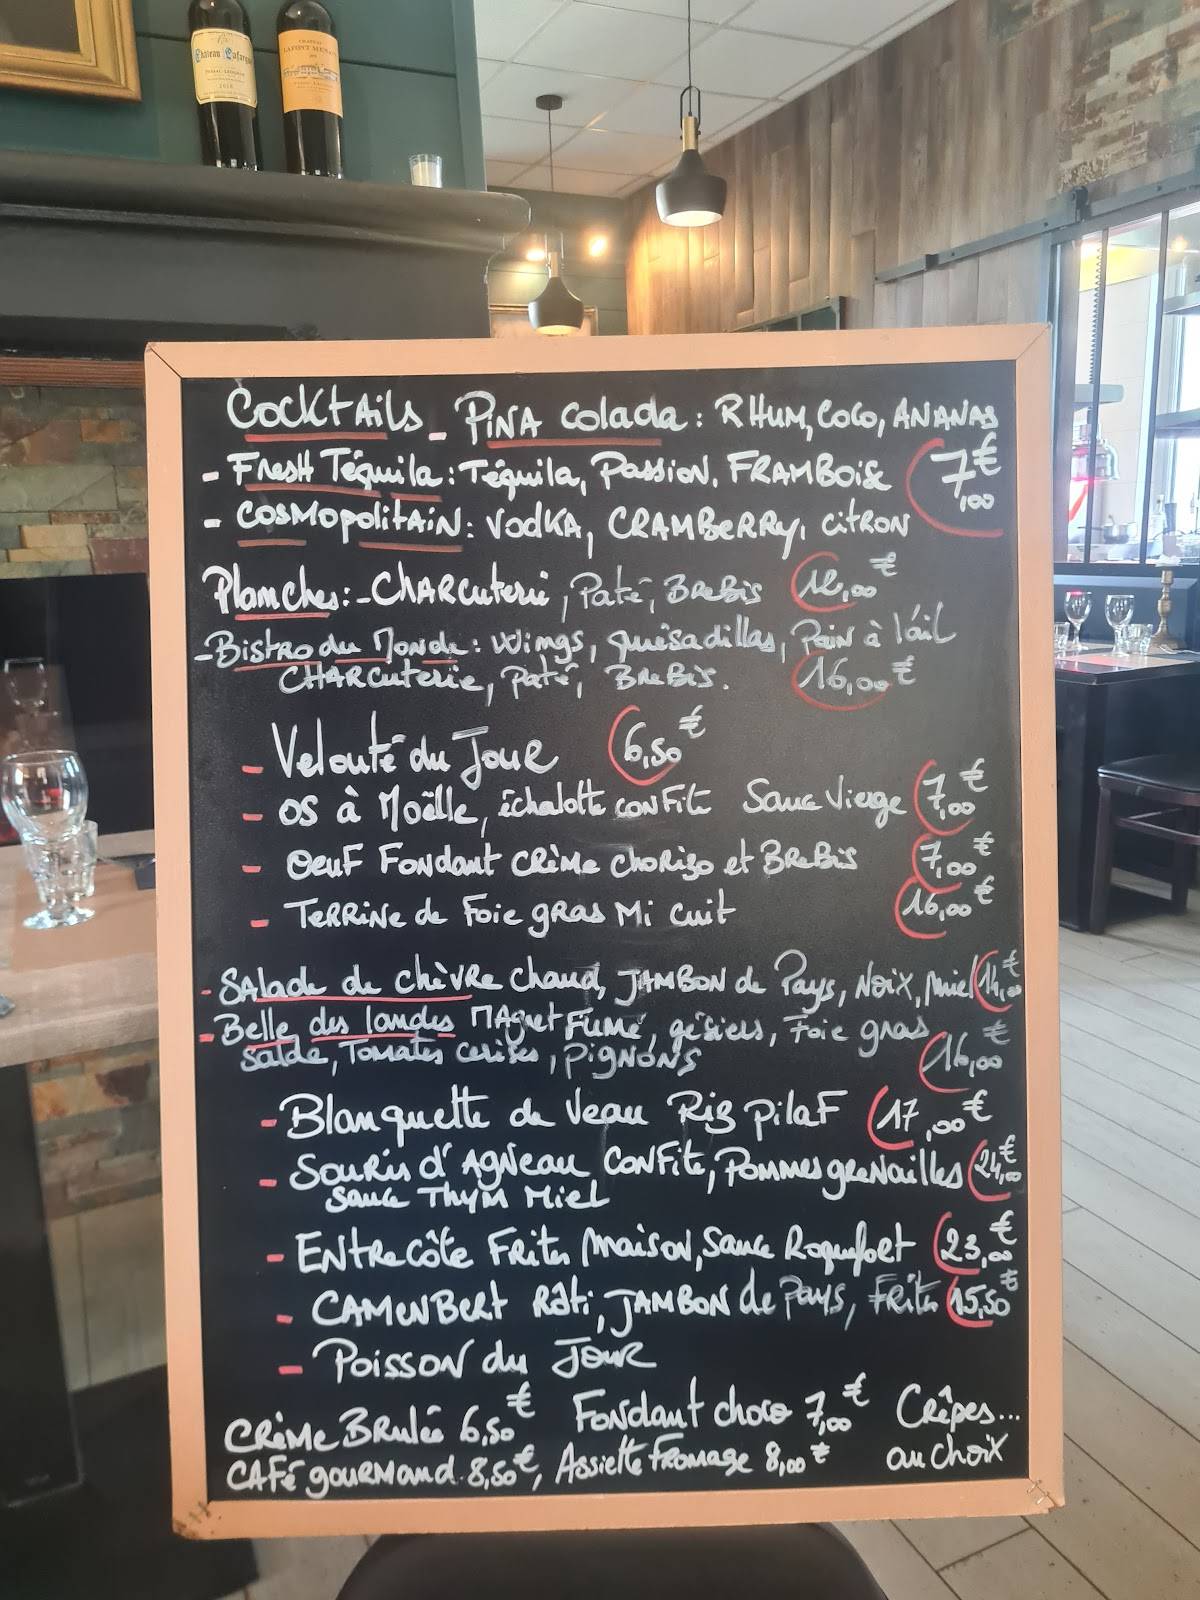 Château Lafargue
PESSAC-LÉOGNAN
2018
CHÂTEAU
LAFONT MENAUT
Cocktails - PiNA Colada : RHUM, COCO, ANANAS
- FresH Téquila : Téquila, Passion, FRAMBoise 7,00€
- COSMOpolitAiN : VodKA, CRAMBeRRY, CitRON
Planches : - CHARCuterie, Paté, BReBis 12,00€
- BistRo du Monde : Wings, quésadillas, Pain à l'ail
CHARCuterie, Paté, BReBis. 16,00€
- Velouté du Jour 6,50€
- OS à Moëlle, échalotte CONFite Sauce Vierge 7,00€
- OeuF Fondant Crème Chorizo et BReBis 7,00€
- TeRRiNe de Foie gRAS Mi Cuit 16,00€
- SAlade de chèvRe Chaud, JAMBON de Pays, Noix, Miel 14,00€
- Belle des landes MAgret Fumé, gésiers, Foie gras
salde, Tomates Cerises, PigNONS 16,00€
- Blanquette de Veau Riz PilaF 17,00€
- SOURis d'AgNeau CONFite, Pommes greNailles 24,00€
Sauce THYM Miel
- ENtRecôte FRites Maison, Sauce Roquefort 23,00€
- CAMeNBert Rôti, JAMBON de Pays, FRites 15,50€
- Poisson du Jour
CRèMe BRulée 6,50€ FoNdant choco 7,00€ Crêpes...
CAFé gouRMand 8,50€, Assiette Fromage 8,00€ au Choix